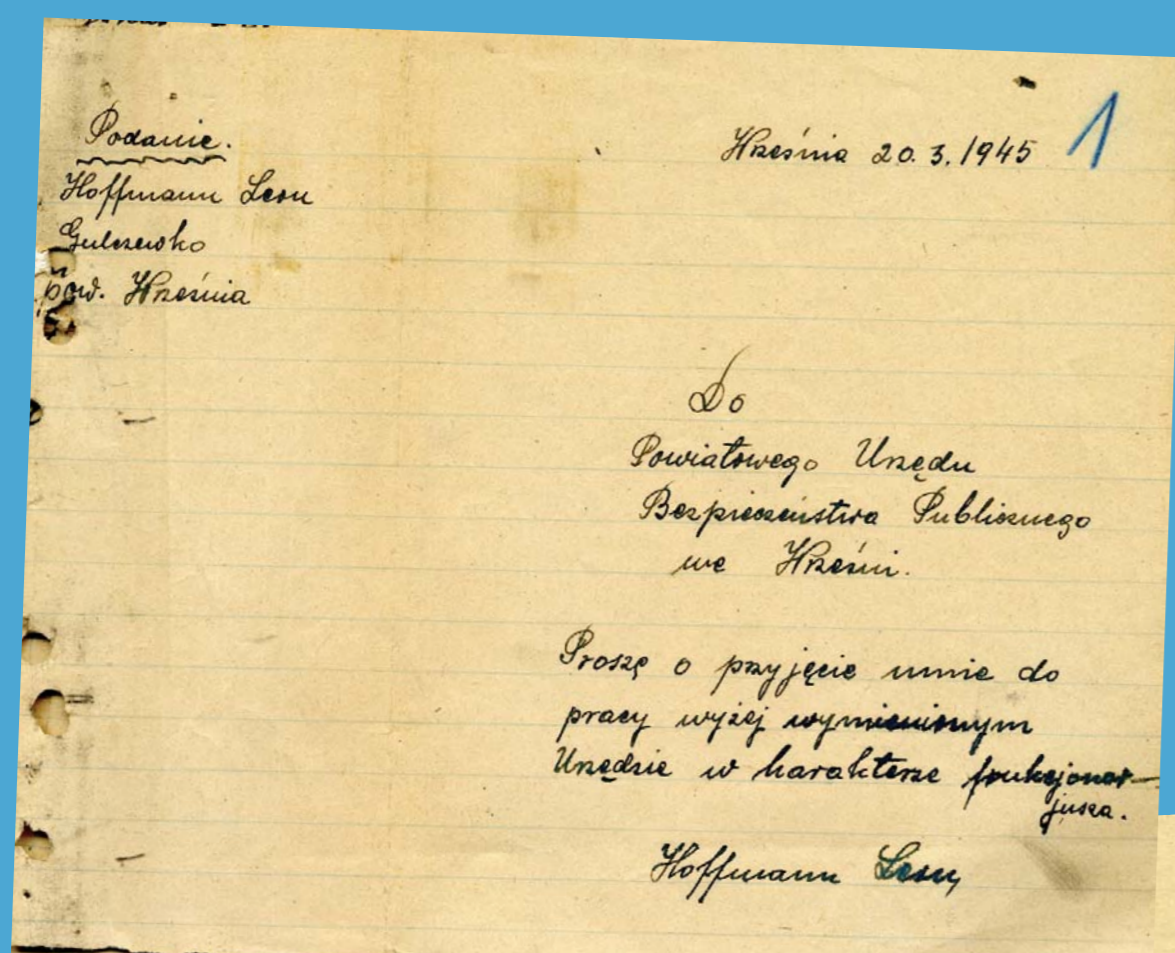 Podanie.
Września 20.3.1945
1
Hoffmann Leon
Gulczewko
pow. Września
Do
Powiatowego Urzędu
Bezpieczeństwa Publicznego
we Wrześni.
Proszę o przyjęcie mnie do
pracy wyżej wymienionym
Urzędzie w harakterze funkcjonar-
jusza.
Hoffmann Leon